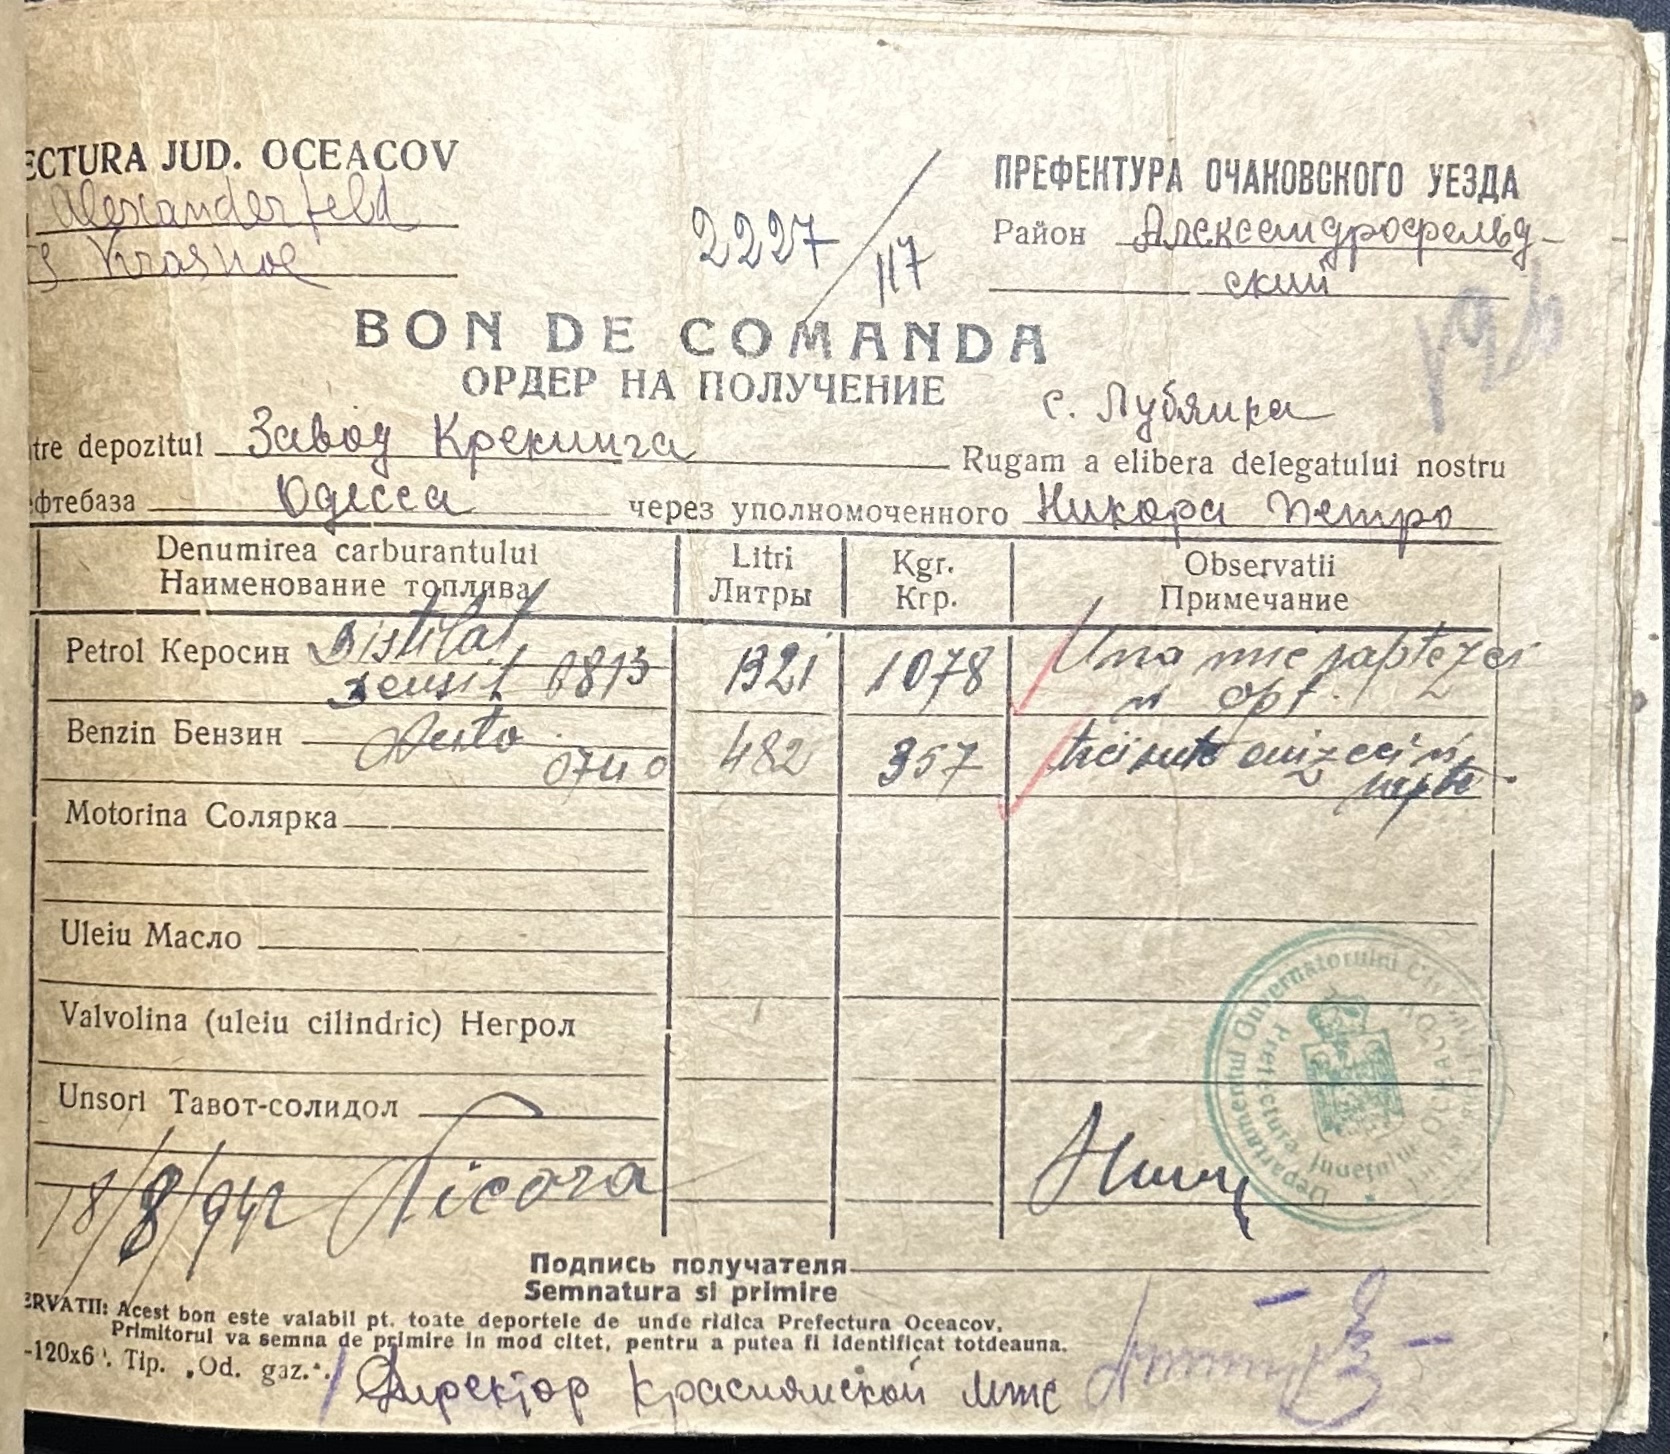 ECTURA JUD. OCEACOV
Alexanderfeld
Krasnoe
2227/117
ПРЕФЕНТУРА ОЧАНОВСНОГО УЕЗДА
Район Александрофельд-
ский
BON DE COMANDA
ОРДЕР НА ПОЛУЧЕНИЕ
с. Лубянка
tre depozitul Завод Крекинга Rugam a elibera delegatului nostru
фтебаза Одесса через уполномоченного Никора Петро
Denumirea carburantului Litri Kgr. Observatii
Наименование топлива Литры Кгр. Примечание
Petrol Керосин Distilat 1321 1078 Una mie șaptezeci
densit 0813 și opt.
Benzin Бензин 482 357 trei sute cinizeci și
0740 șapte
Motorina Солярка
Uleiu Масло
Valvolina (uleiu cilindric) Негрол
Unsori Тавот-солидол
18/8/942 Nicora
Departamentul Guvernatorului Civil
Prefectura Județului OCEACOV
Подпись получателя
Semnatura si primire
ERVATII: Acest bon este valabil pt. toate deportele de unde ridica Prefectura Oceacov.
Primitorul va semna de primire in mod citet, pentru a putea fi identificat totdeauna.
-120x6 . Tip. „Od. gaz.“.
Директор Краснянской мтс